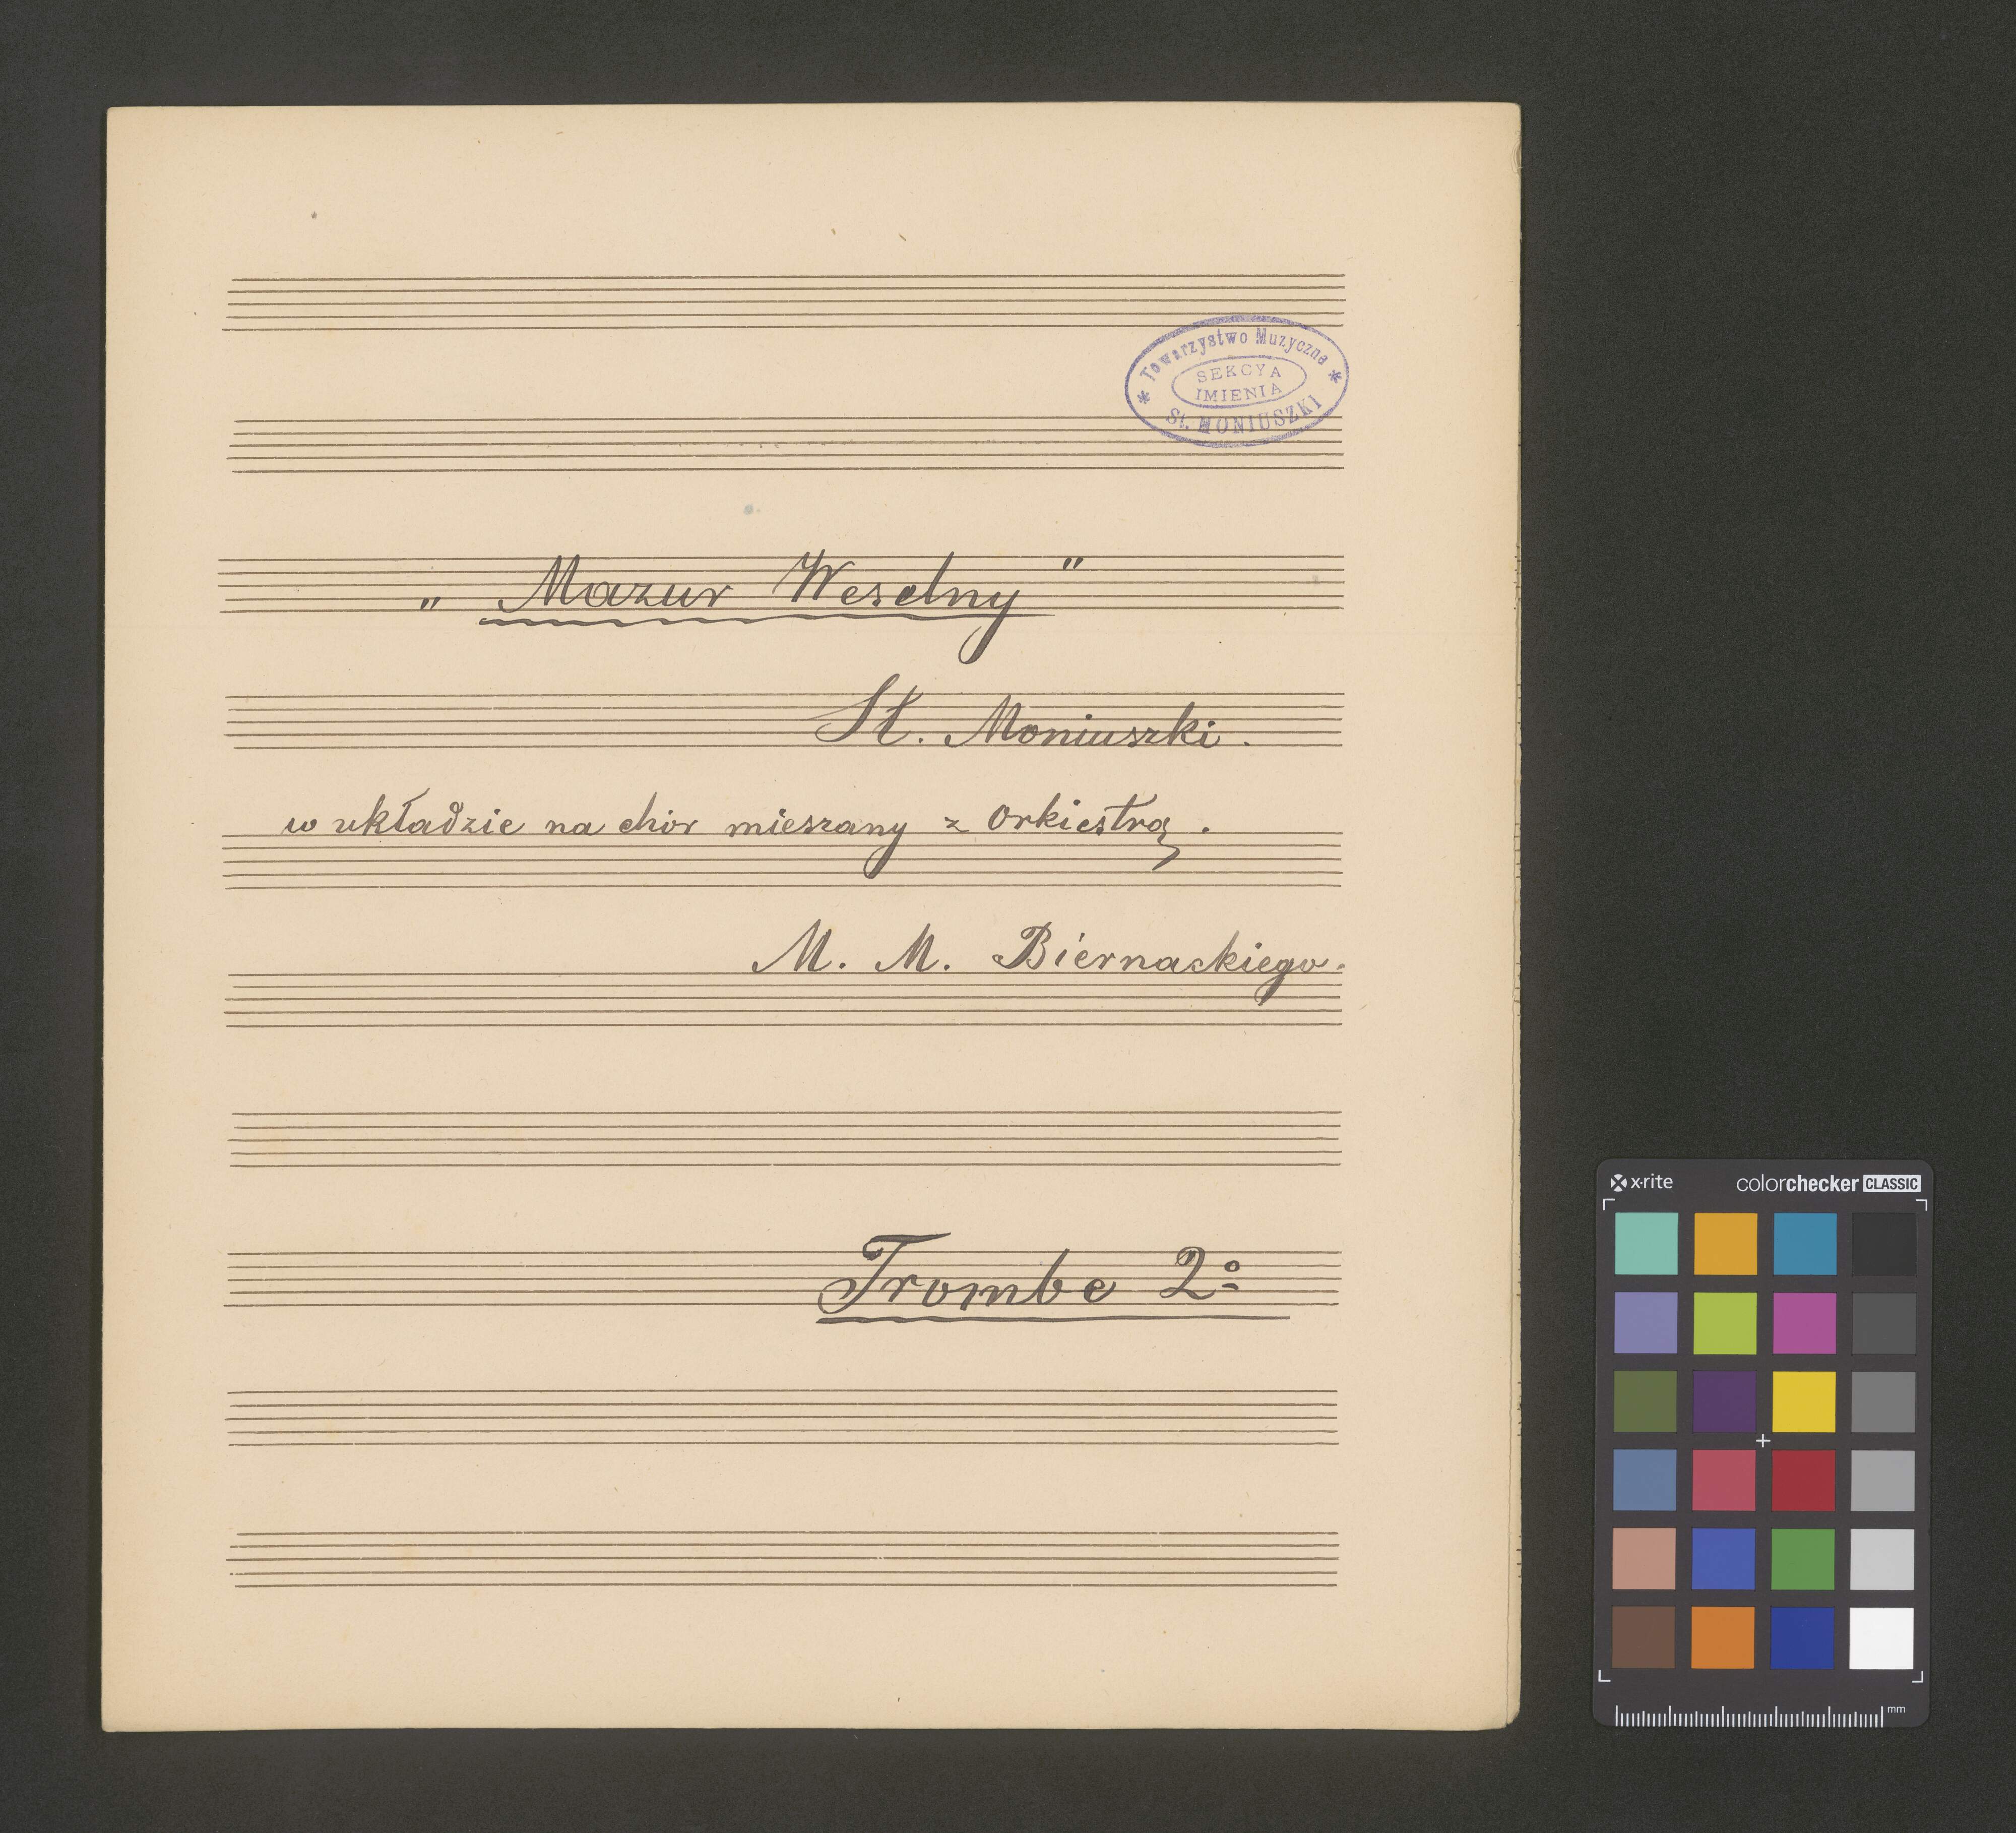 Towarzystwo Muzyczne
SEKCYA
IMIENIA
St. MONIUSZKI
„Mazur Weselny"
St. Moniuszki.
w układzie na chór mieszany z Orkiestrą.
M. M. Biernackiego.
Trombe 2º
x·rite colorchecker CLASSIC
mm